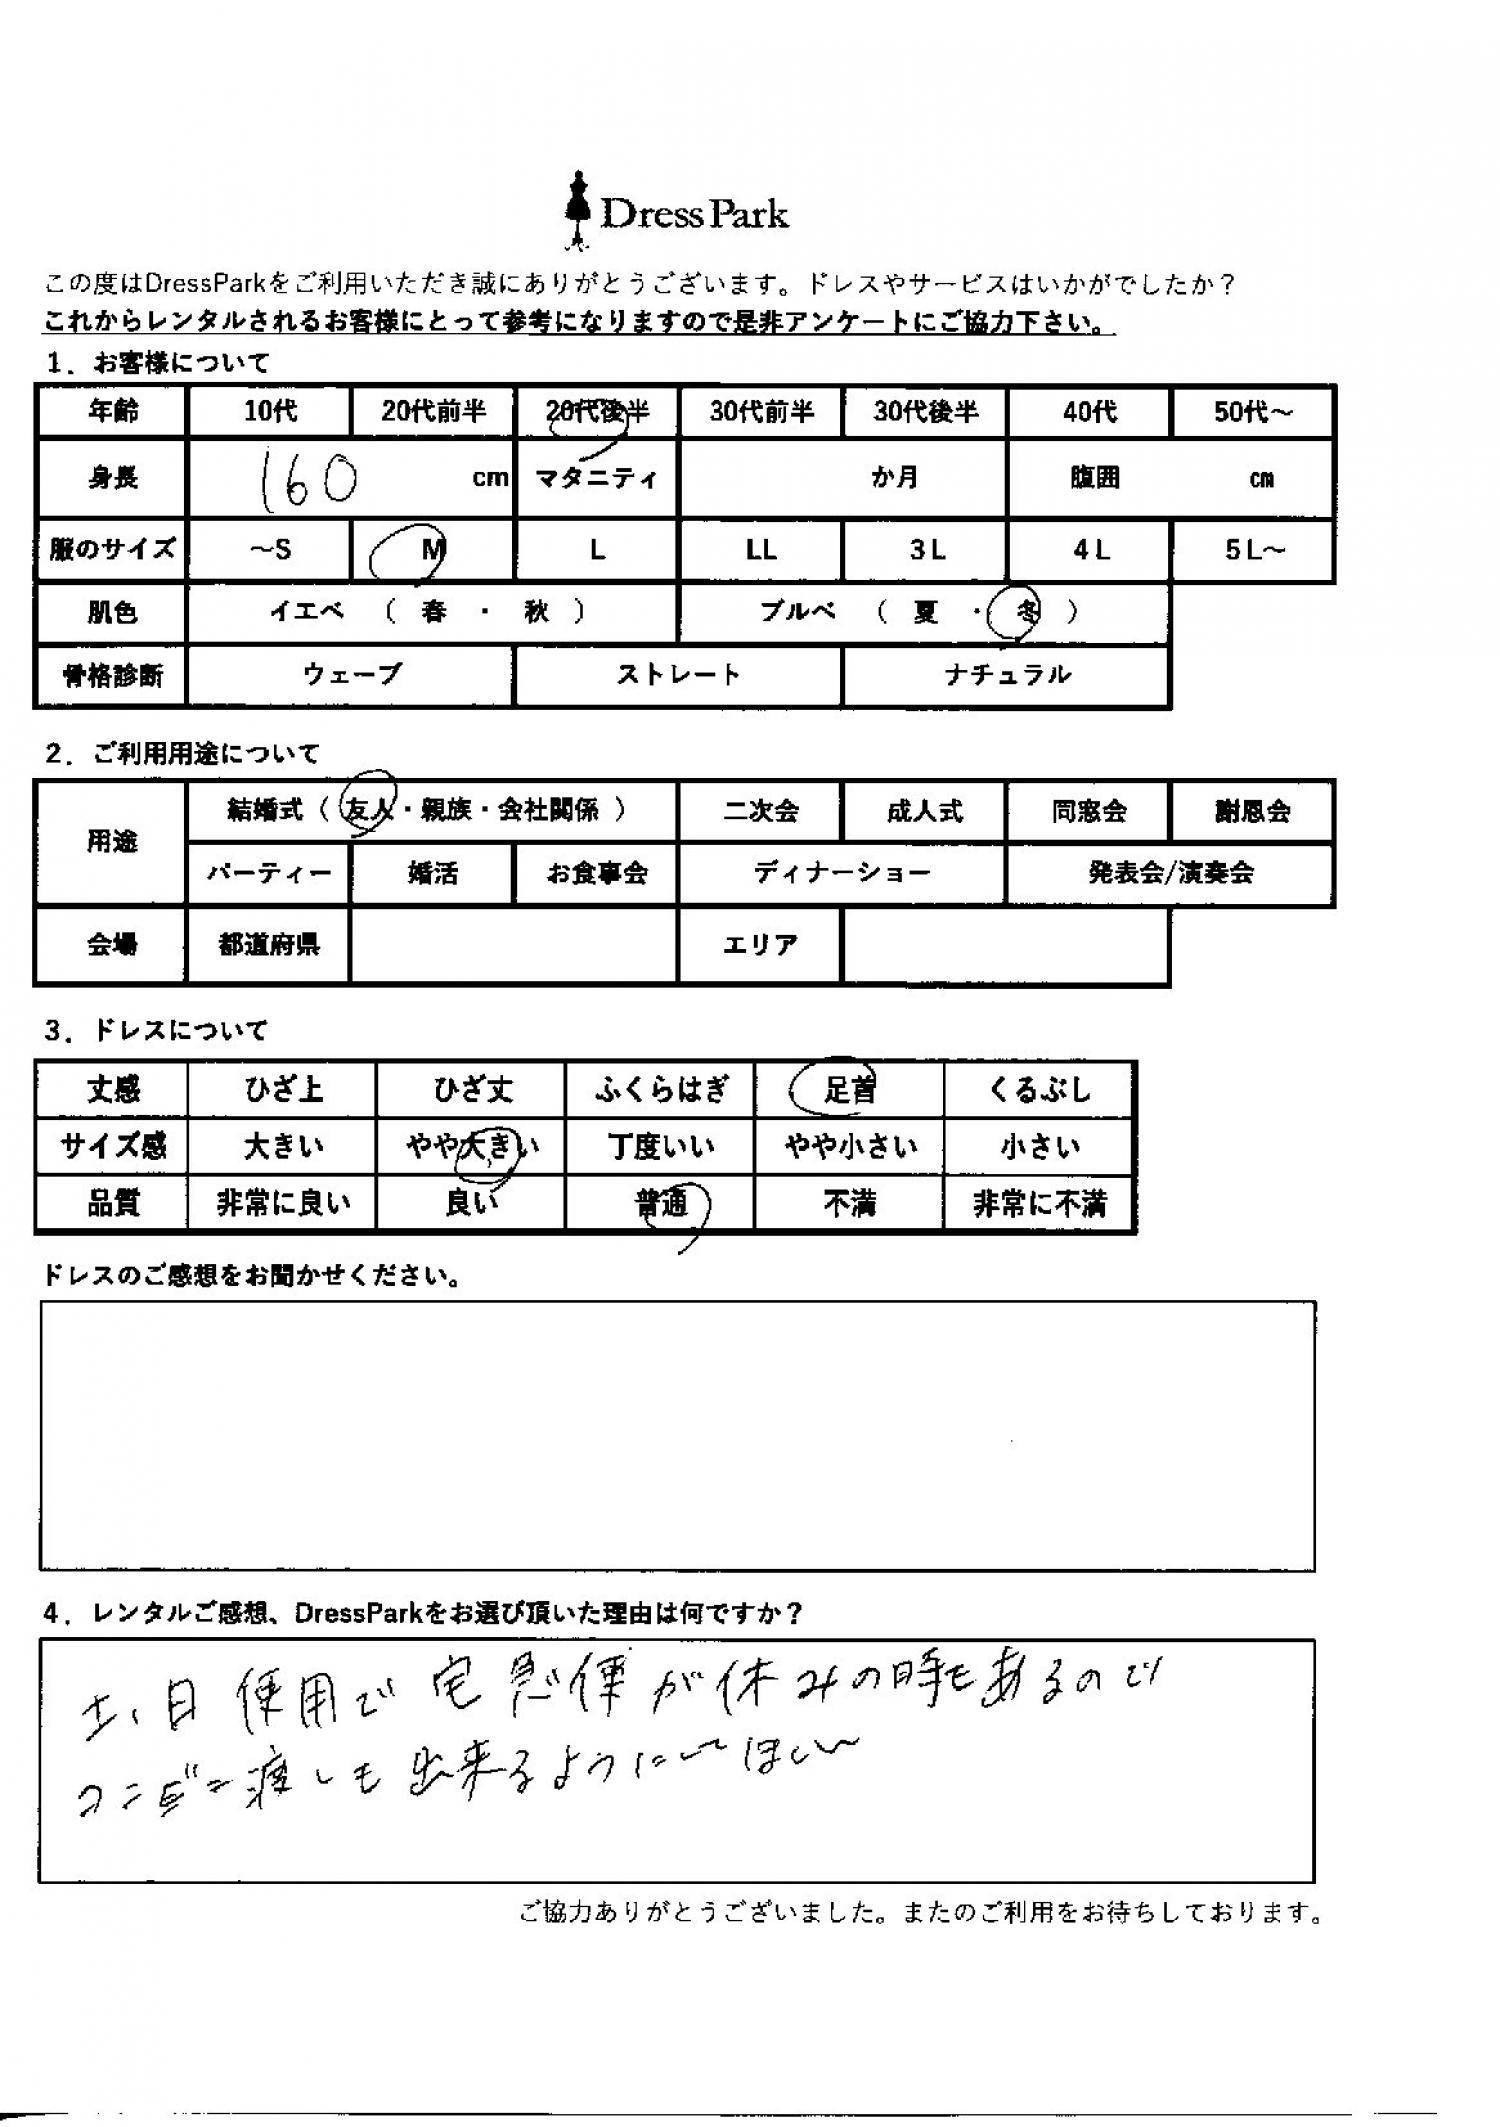 Dress Park
この度はDressParkをご利用いただき誠にありがとうございます。ドレスやサービスはいかがでしたか？
これからレンタルされるお客様にとって参考になりますので是非アンケートにご協力下さい。
1．お客様について
年齢 10代 20代前半 20代後半 30代前半 30代後半 40代 50代～
身長 160 cm マタニティ か月 腹囲 cm
服のサイズ ～S M L LL 3L 4L 5L～
肌色 イエベ （ 春 ・ 秋 ） ブルベ （ 夏 ・ 冬 ）
骨格診断 ウェーブ ストレート ナチュラル
2．ご利用用途について
用途 結婚式（ 友人・親族・会社関係 ） 二次会 成人式 同窓会 謝恩会
パーティー 婚活 お食事会 ディナーショー 発表会/演奏会
会場 都道府県 エリア
3．ドレスについて
丈感 ひざ上 ひざ丈 ふくらはぎ 足首 くるぶし
サイズ感 大きい やや大きい 丁度いい やや小さい 小さい
品質 非常に良い 良い 普通 不満 非常に不満
ドレスのご感想をお聞かせください。
4．レンタルご感想、DressParkをお選び頂いた理由は何ですか？
土、日使用で宅急便が休みの時もあるので
コンビニ渡しも出来るように〜ほしい〜
ご協力ありがとうございました。またのご利用をお待ちしております。